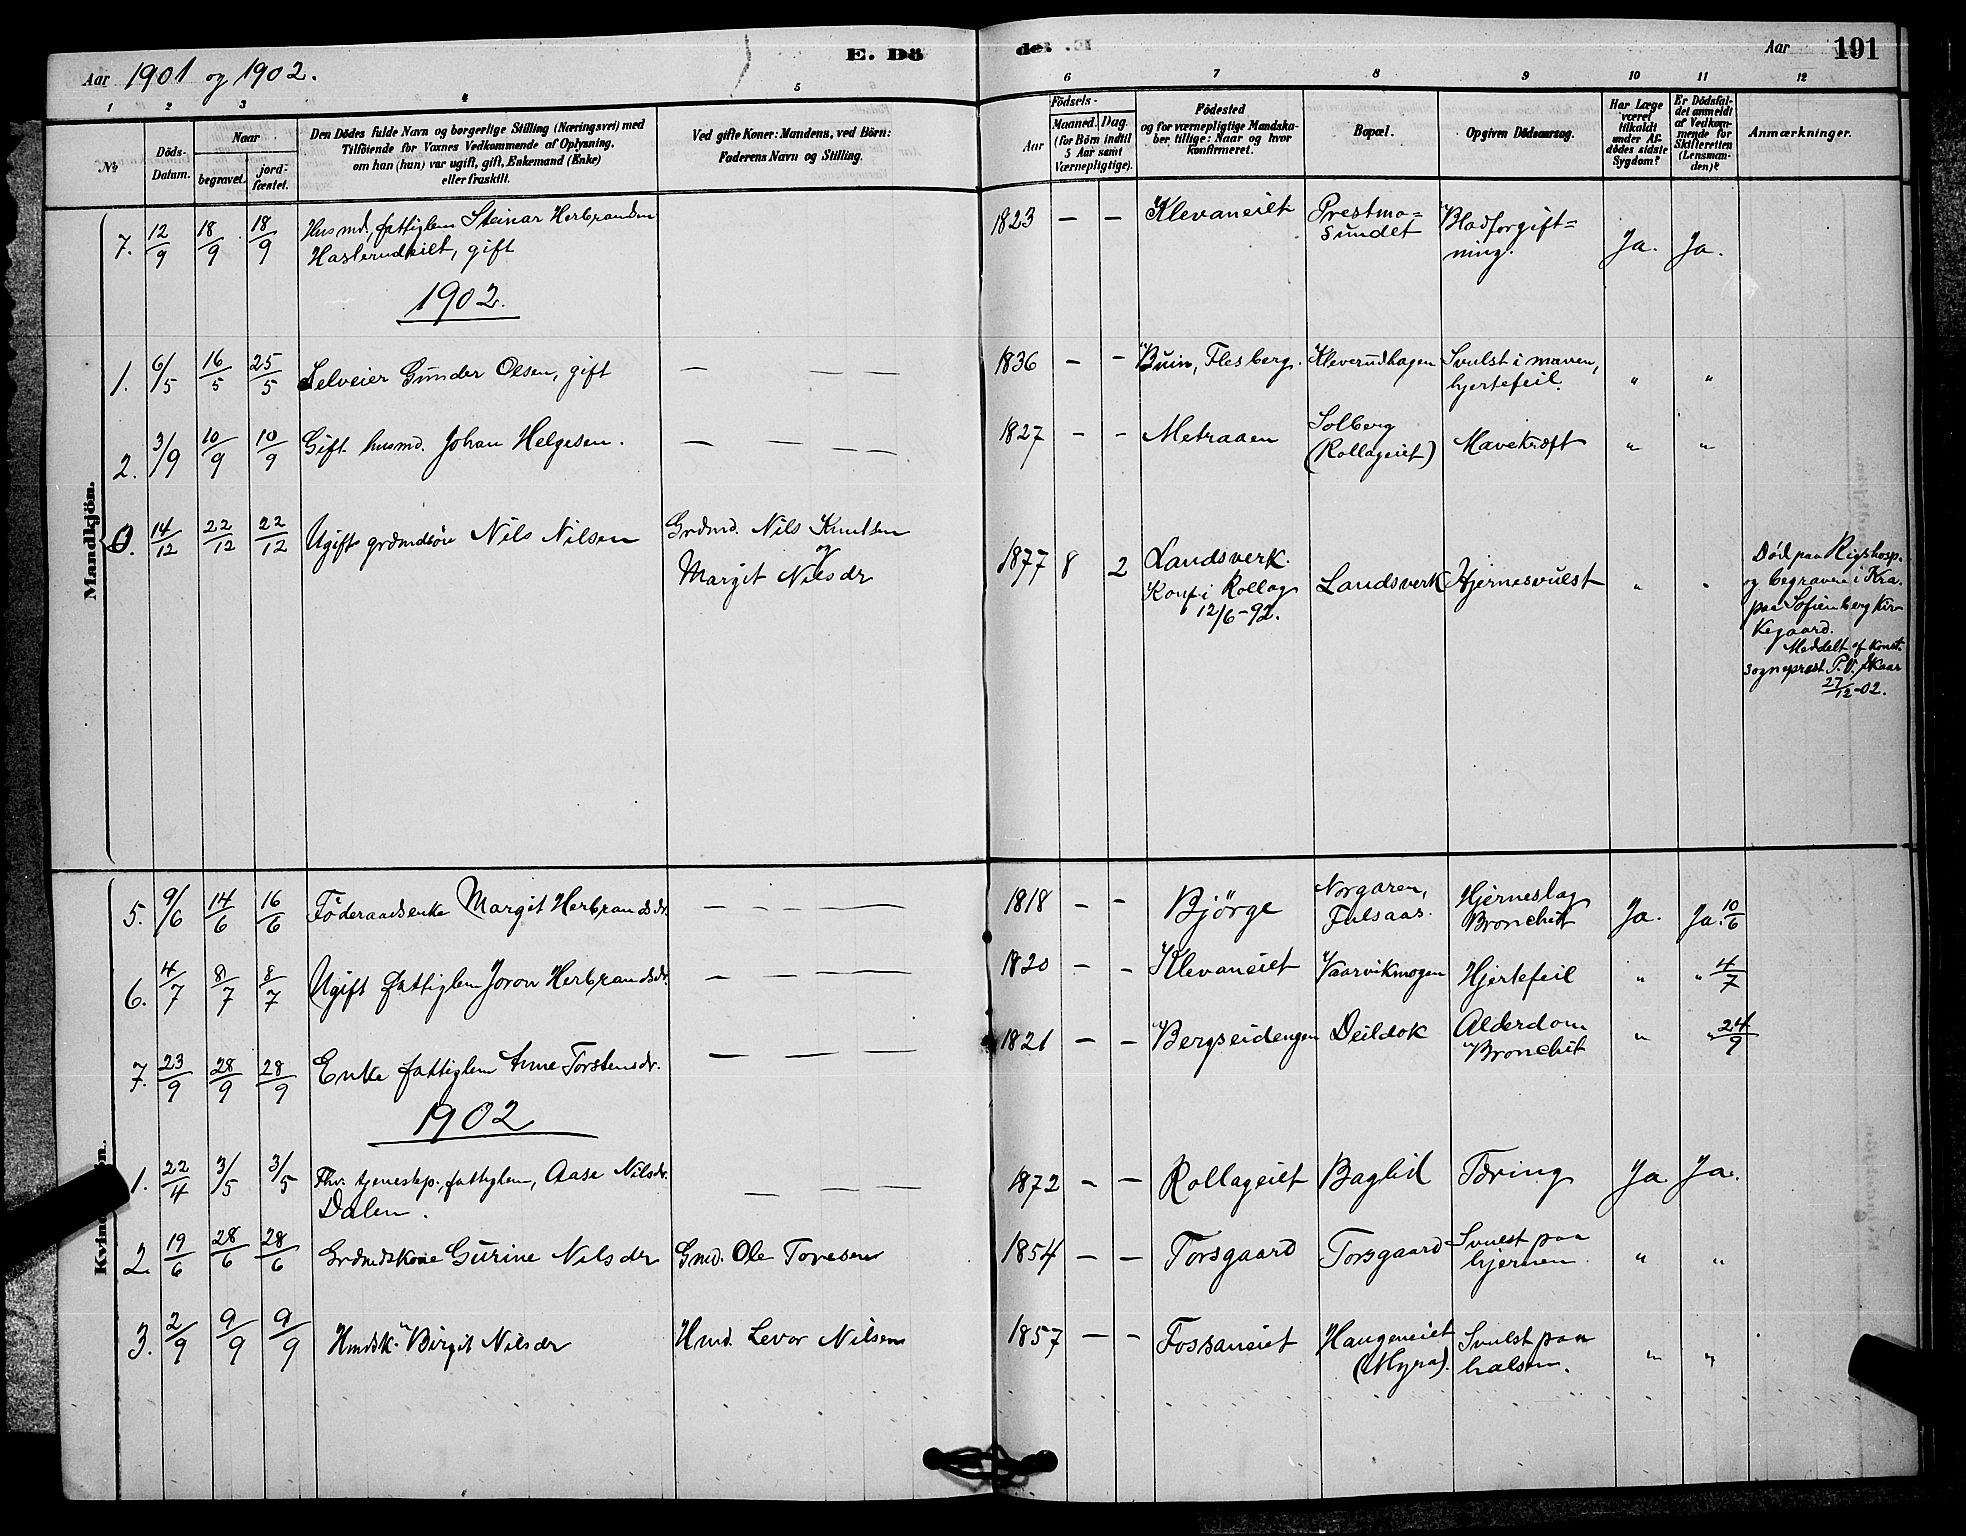 Aar 1901 og 1902.
E. Dö
de
Aar
191
1 2 3 4 5
6 7 8 9 10 11 12
№
Döds-
Datum.
Naar
begravet.
jord-
fæstet.
Den Dödes fulde Navn og borgerlige Stilling (Næringsvei) med
Tilföiende for Voxnes Vedkommende af Oplysning,
om han (hun) var ugift, gift, Enkemand (Enke)
eller fraskilt.
Ved gifte Koner: Mandens, ved Börn:
Faderens Navn og Stilling.
Födsels-
Aar
Maaned. Dag.
(for Börn indtil
5 Aar samt
Værnepligtige).
Födested
og for værnepligtige Mandska-
ber tillige: Naar og hvor
konfirmeret.
Bopæl.
Opgiven Dödsaarsag.
Har Læge
været
tilkaldt
under Af-
dödes sidste
Sygdom?
Er Dödsfal-
det anmeldt
af Vedkom-
mende for
Skifteretten
(Lensman-
den)?
Anmærkninger.
Mandkjön.
7. 12/9 18/9 18/9 Husmd., fattiglem Steinar Herbrandsen
Haslerudeiet, gift
1823 — — Klevaneiet Prestmo=
sundet Blodforgift=
ning. Ja. Ja.
1902.
1. 6/5 16/5 25/5 Selveier Gunder Olsen, gift — — —
1836 — - Buin, Flesberg. Kleverudhagen Svulst i maven,
hjertefeil. " "
2. 3/9 10/9 10/9 Gift husmd. Johan Helgesen. — — — —
1827 - - Metraaen Solberg
(Rollageiet) Mavekræft " "
0. 14/12 22/12 22/12 Ugift grdmdsön Nils Nilsen Grdmd. Nils Knutsen
og
Margit Nilsdr
1877 8 2 Landsverk.
Konf i Rollag
12/6-92.
Landsverk Hjernesvulst " "
Död paa Rigshosp.
og begraven i Kra.
paa Sofienberg Kir-
kegaard.
Meddelt af konst.
sogneprest P. V. Skaar
27/12-02.
5. 9/6 14/6 16/6 Föderaadsenke Margit Herbrandsdr. — - — —
1818 — - Björge Norgaren,
Fulsaas. Hjerneslag
Bronchit Ja. Ja. 10/6
6. 4/7 8/7 8/7 Ugift fattiglem Joron Herbrandsdr. — — — —
1820 - - Klevaneiet Vaarvikmogen Hjertefeil " " 4/7
7. 23/9 28/9 28/9 Enke fattiglem Anne Torstensdr. — — — —
1821 — — Bergseidengen Deildok Alderdom
Bronchit " " 24/9
1902
Kvin
n.
1. 22/4 3/5 3/5 Fhv. tjenestep., fattiglem, Aase Nilsdr.
Dalen. — — — —
1872 — — Rollageiet Baglid Tæring Ja. Ja.
2. 19/6 28/6 28/6 Grdmdskone Gurine Nilsdr Gmd. Ole Toresen
1854 — — Torsgaard Torsgaard Svulst paa
hjernen. " "
3. 2/9 9/9 9/9 Hmdsk. Birgit Nilsdr Hmd. Levor Nilsen
1857 — — Fossaneiet Haugeneiet
(Myra). Svulst paa
halsen. " "